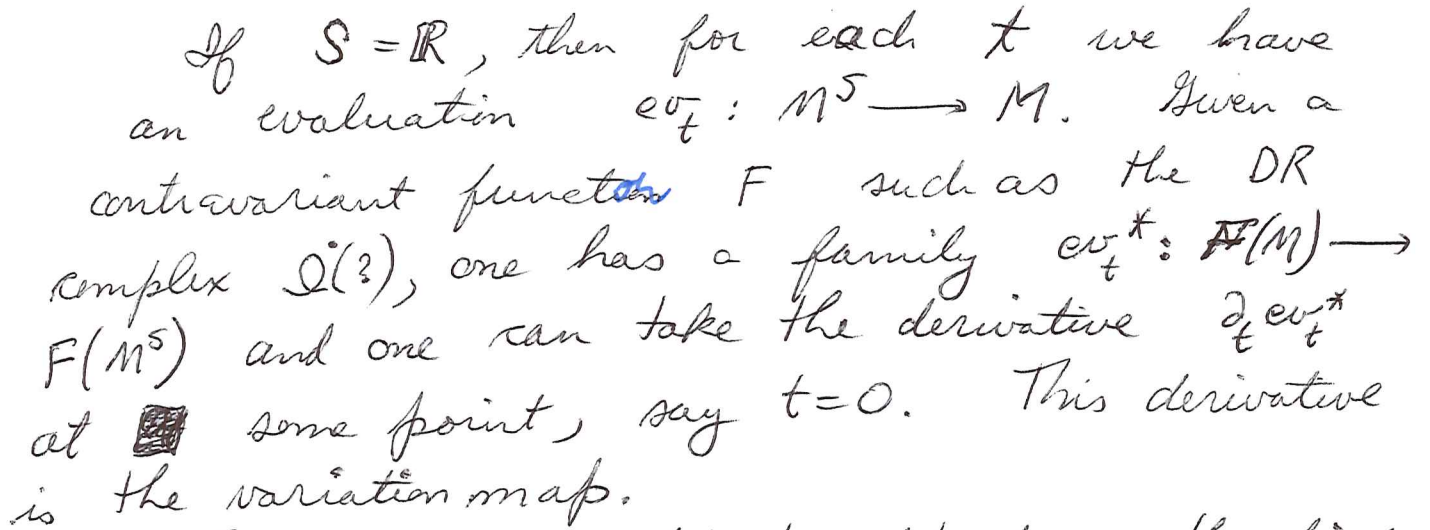 If S = ℝ, then for each t we have
an evaluation ev_t : M^S ⟶ M. Given a
contravariant functor F such as the DR
complex Ω^•(?), one has a family ev_t^* : F(M) ⟶
F(M^S) and one can take the derivative ∂_t ev_t^*
at some point, say t=0. This derivative
is the variation map.